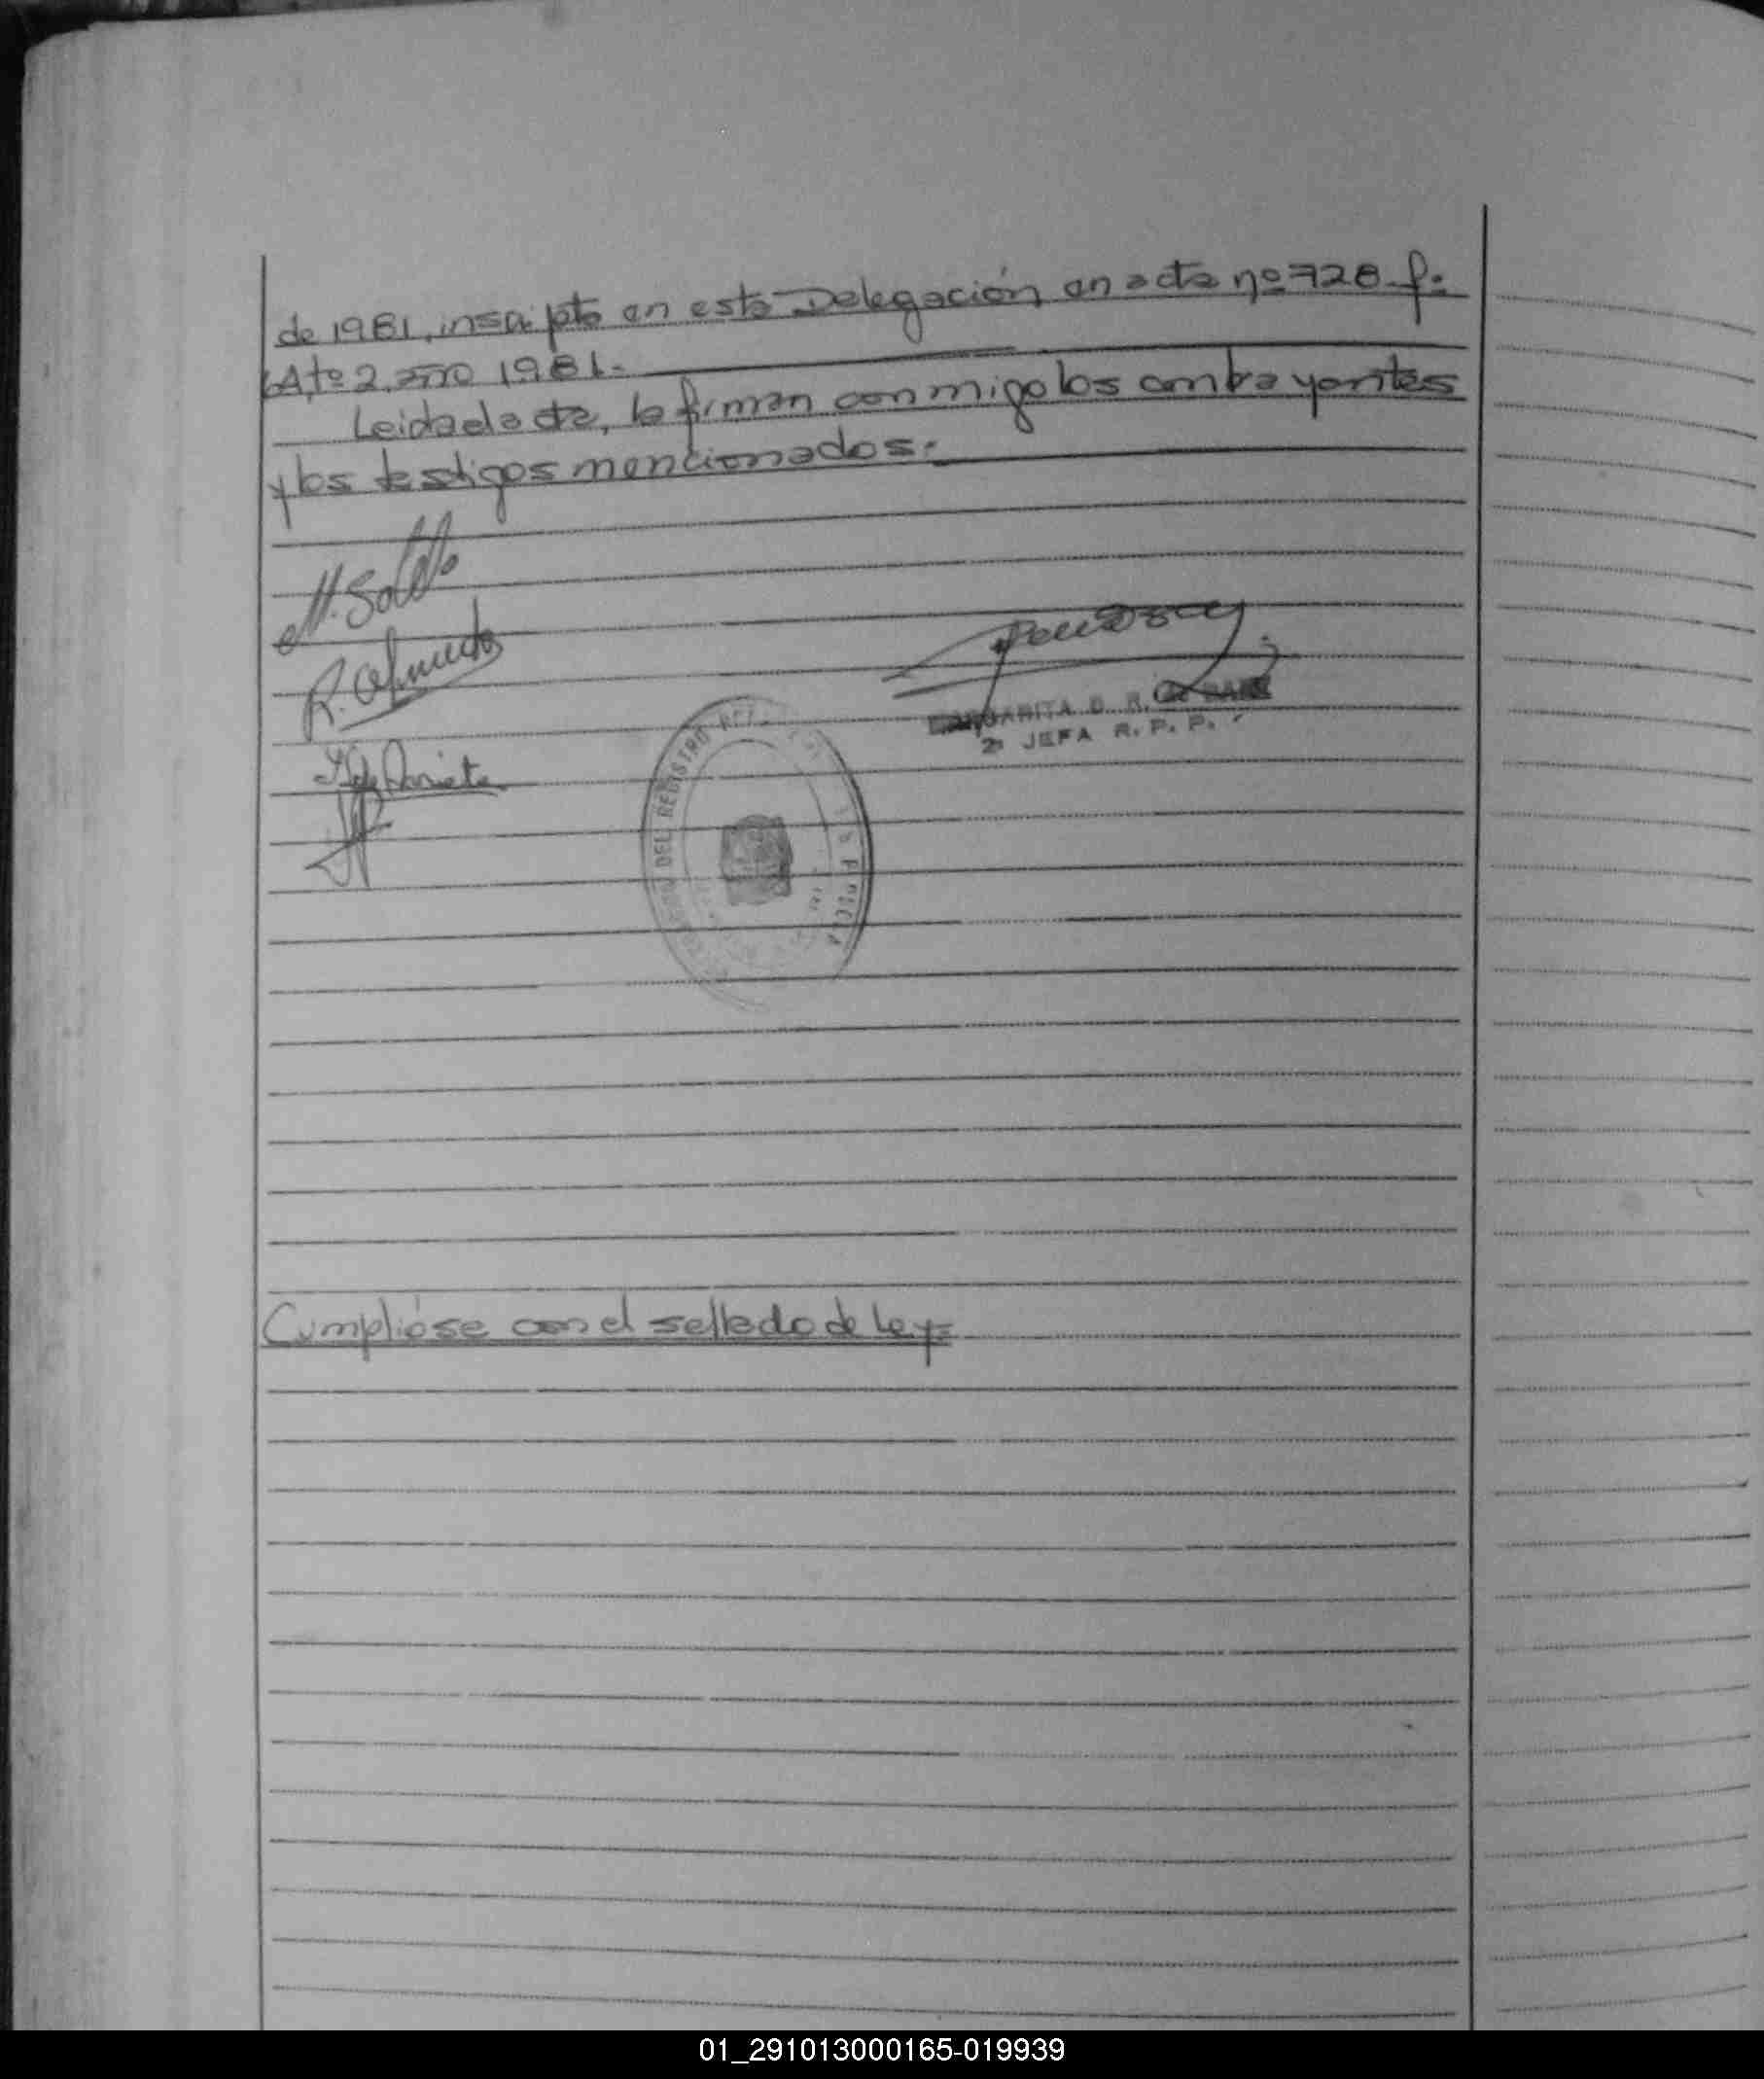 de 1981, inscripto en esta Delegación en acta nº 728 fº
6A, tº 2, año 1981.-
Leida el acta, la firman conmigo los contrayentes
y los testigos mencionados.-
MARGARITA D. R.
2ª JEFA R. P. P.
DEL REGISTRO
Cumplióse con el sellado de Ley=
01_291013000165-019939